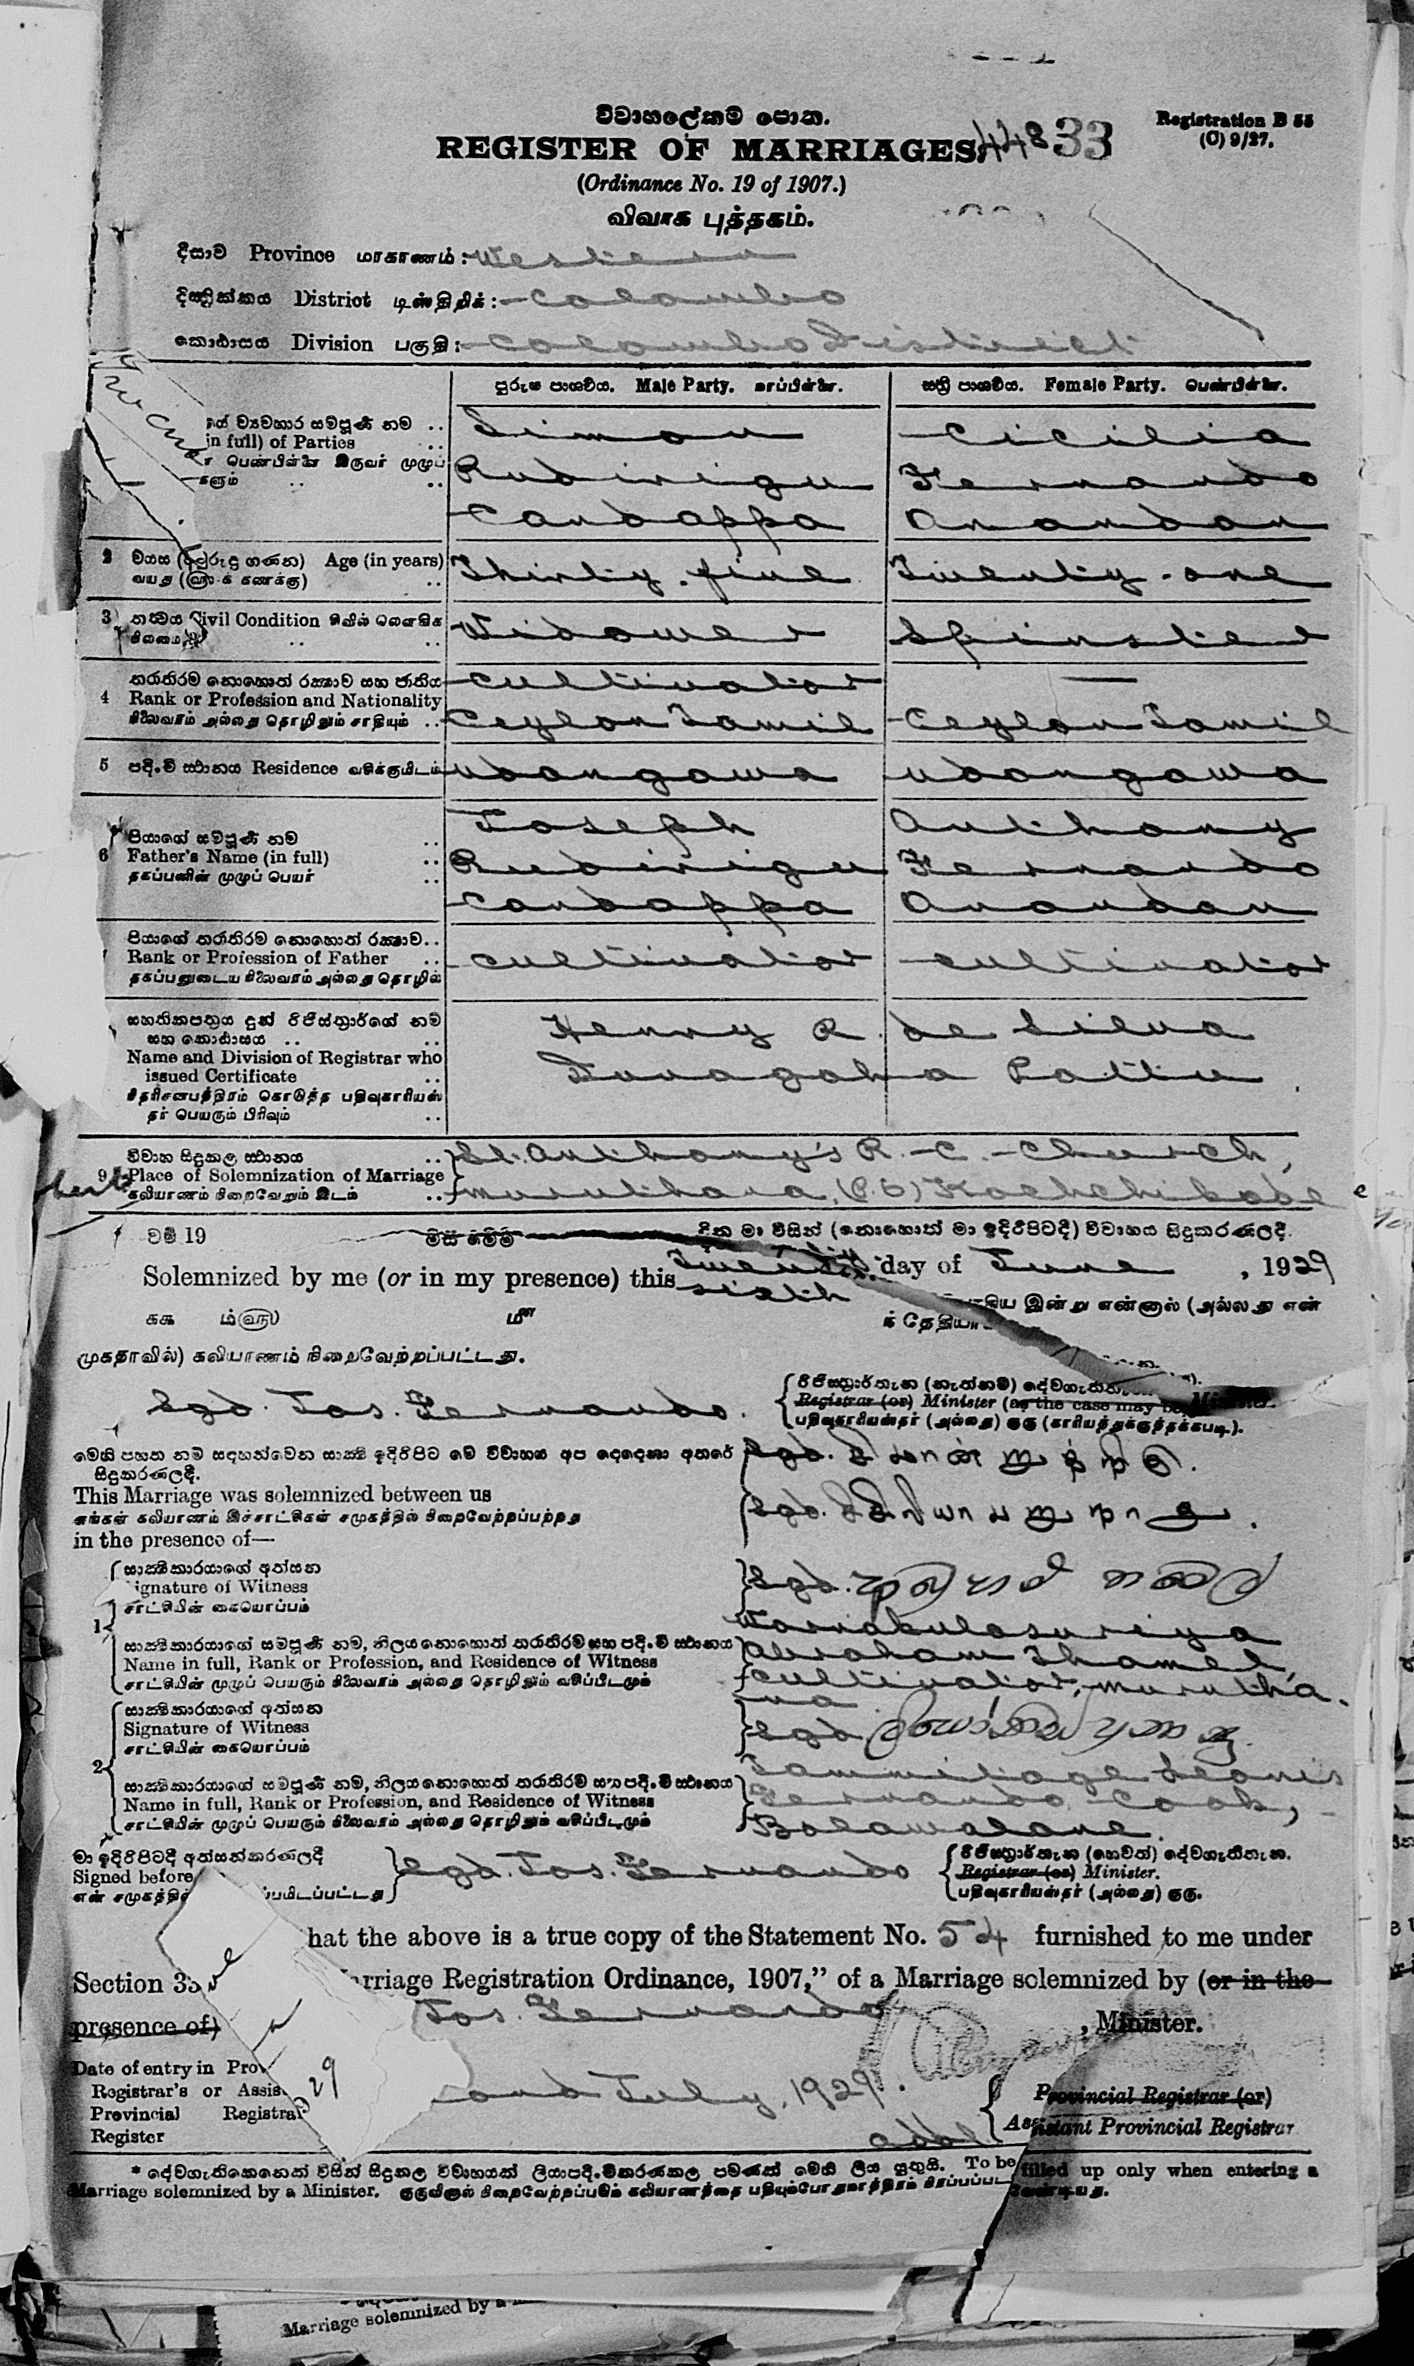 විවාහලේකම් පොත.
Registration B 55
REGISTER OF MARRIAGES, 44833
(G) 9/27.
(Ordinance No. 19 of 1907.)
விவாக புத்தகம்.
දිසාව Province மாகாணம்: Western
දිස්ත්‍රික්කය District டிஸ்திறிக்: Colombo
කොට්ඨාසය Division பகுதி: Colombo District
පුරුෂ පාර්ශ්වය. Male Party. மாப்பிள்ளை.
ස්ත්‍රී පාර්ශ්වය. Female Party. பெண்பிள்ளை.
ව්‍යවහාර සම්පූර්ණ නම ..
in full) of Parties ..
பெண்பிள்ளை இருவர் முழுப்
களும் .. ..
Simon
Rudirigu
Candappa
Cicilia
Fernando
Anandan
2 වයස (අවුරුදු ගණන) Age (in years)
வயது ( கணக்கு) ..
Thirty-five
Twenty-one
3 තත්වය Civil Condition சிவில் லௌகிக
நிலைமை .. ..
Widower
Spinster
4 තරාතිරම නොහොත් රක්ෂාව සහ ජාතිය
Rank or Profession and Nationality
நிலைவரம் அல்லது தொழிலும் சாதியும் ..
Cultivator
Ceylon Tamil
—
Ceylon Tamil
5 පදිංචි ස්ථානය Residence வசிக்குமிடம்
Udangawa
Udangawa
6 පියාගේ සම්පූර්ණ නම ..
Father's Name (in full) ..
தகப்பனின் முழுப் பெயர் ..
Joseph
Rudirigu
Candappa
Anthony
Fernando
Anandan
පියාගේ තරාතිරම නොහොත් රක්ෂාව..
Rank or Profession of Father ..
தகப்பனுடைய நிலைவரம் அல்லது தொழில்
Cultivator
Cultivator
සහතිකපත්‍රය දුන් රෙජිස්ත්‍රාර්ගේ නම
සහ කොට්ඨාසය .. ..
Name and Division of Registrar who
issued Certificate ..
அத்தாட்சிப்பத்திரம் கொடுத்த பதிவுகாரியஸ்
தர் பெயரும் பிரிவும் ..
Henry R. de Silva
Dunagaha Pattu
9 විවාහ සිදුකල ස්ථානය ..
Place of Solemnization of Marriage
கலியாணம் நிறைவேறும் இடம் ..
St. Anthony's R. C. Church,
Muruthana, (P. O) Kochchikade
වර්ෂ 19 මස දින මා විසින් (නොහොත් මා ඉදිරිපිටදී) විවාහය සිදුකරණලදී.
Solemnized by me (or in my presence) this Twenty sixth day of June, 1929
இன்று என்னால் (அல்லது என்
முகதாவில்) கலியாணம் நிறைவேற்றப்பட்டது.
Sgd. Jos. Fernando.
Registrar (or) Minister (as the case may be)
பதிவுகாரியஸ்தர் (அல்லது) குரு (காரியத்துக்குத்தக்கபடி.).
මෙහි පහත නම සඳහන්වෙන සාක්ෂි ඉදිරිපිට මේ විවාහය අප දෙදෙනා අතරේ
සිදුකරණලදී.
This Marriage was solemnized between us
எங்கள் கலியாணம் இச்சாட்சிகள் சமுகத்தில் நிறைவேற்றப்பற்றது
in the presence of—
Sgd.
Sgd.
1 සාක්ෂිකාරයාගේ අත්සන
Signature of Witness
சாட்சியின் கையொப்பம்
Sgd.
සාක්ෂිකාරයාගේ සම්පූර්ණ නම, නිලය නොහොත් තරාතිරම සහ පදිංචි ස්ථානය
Name in full, Rank or Profession, and Residence of Witness
சாட்சியின் முழுப் பெயரும் நிலைவரம் அல்லது தொழிலும் வசிப்பிடமும்
Warnakulasuriya
Abraham Thamel,
Cultivator, Murutha-
na
2 සාක්ෂිකාරයාගේ අත්සන
Signature of Witness
சாட்சியின் கையொப்பம்
Sgd.
සාක්ෂිකාරයාගේ සම්පූර්ණ නම, නිලය නොහොත් තරාතිරම සහ පදිංචි ස්ථානය
Name in full, Rank or Profession, and Residence of Witness
சாட்சியின் முழுப் பெயரும் நிலைவரம் அல்லது தொழிலும் வசிப்பிடமும்
Tammitage Leanis
Fernando Cook,
Bolawalane.
මා ඉදිරිපිටදී අත්සන්කරණලදී
Signed before
என் சமுகத்தில்
Sgd. Jos. Fernando
රෙජිස්ත්‍රාර්තැන (හෙවත්) දේවගැතිතැන.
Registrar (or) Minister.
பதிவுகாரியஸ்தர் (அல்லது) குரு.
hat the above is a true copy of the Statement No. 54 furnished to me under
Section 33 arriage Registration Ordinance, 1907," of a Marriage solemnized by (or in the
presence of) Jos. Fernando, Minister.
Date of entry in Prov
Registrar's or Assis
Provincial Registrar
Register
July, 1929.
Provincial Registrar (or)
Assistant Provincial Registrar
* දේවගැතිකෙනෙක් විසින් සිදුකල විවාහයක් ලියාපදිංචිකරණකල පමණක් මෙහි ලිය යුතුයි. To be filled up only when entering a
Marriage solemnized by a Minister. குருவினால் நிறைவேற்றப்படும் கலியாணத்தை பதியும்போதுமாத்திரம்
Marriage solemnized by a